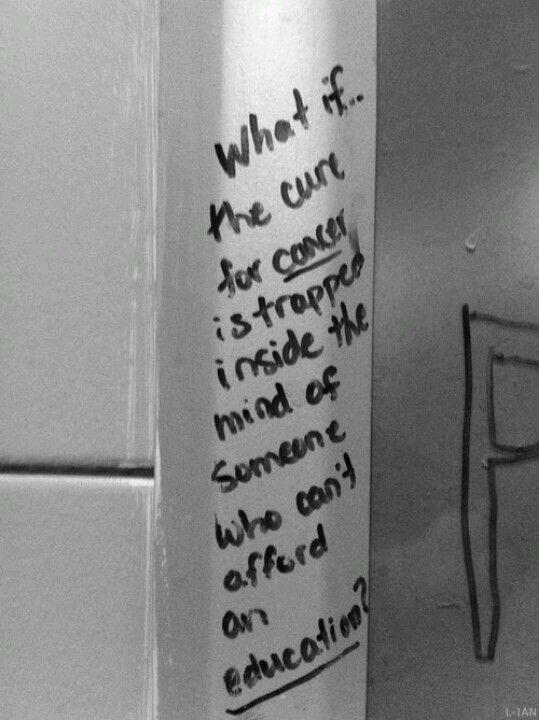 What if...
the cure
for cancer
is trapped
inside the
mind of
someone
who can't
afford
an
education?
P
L-IAN